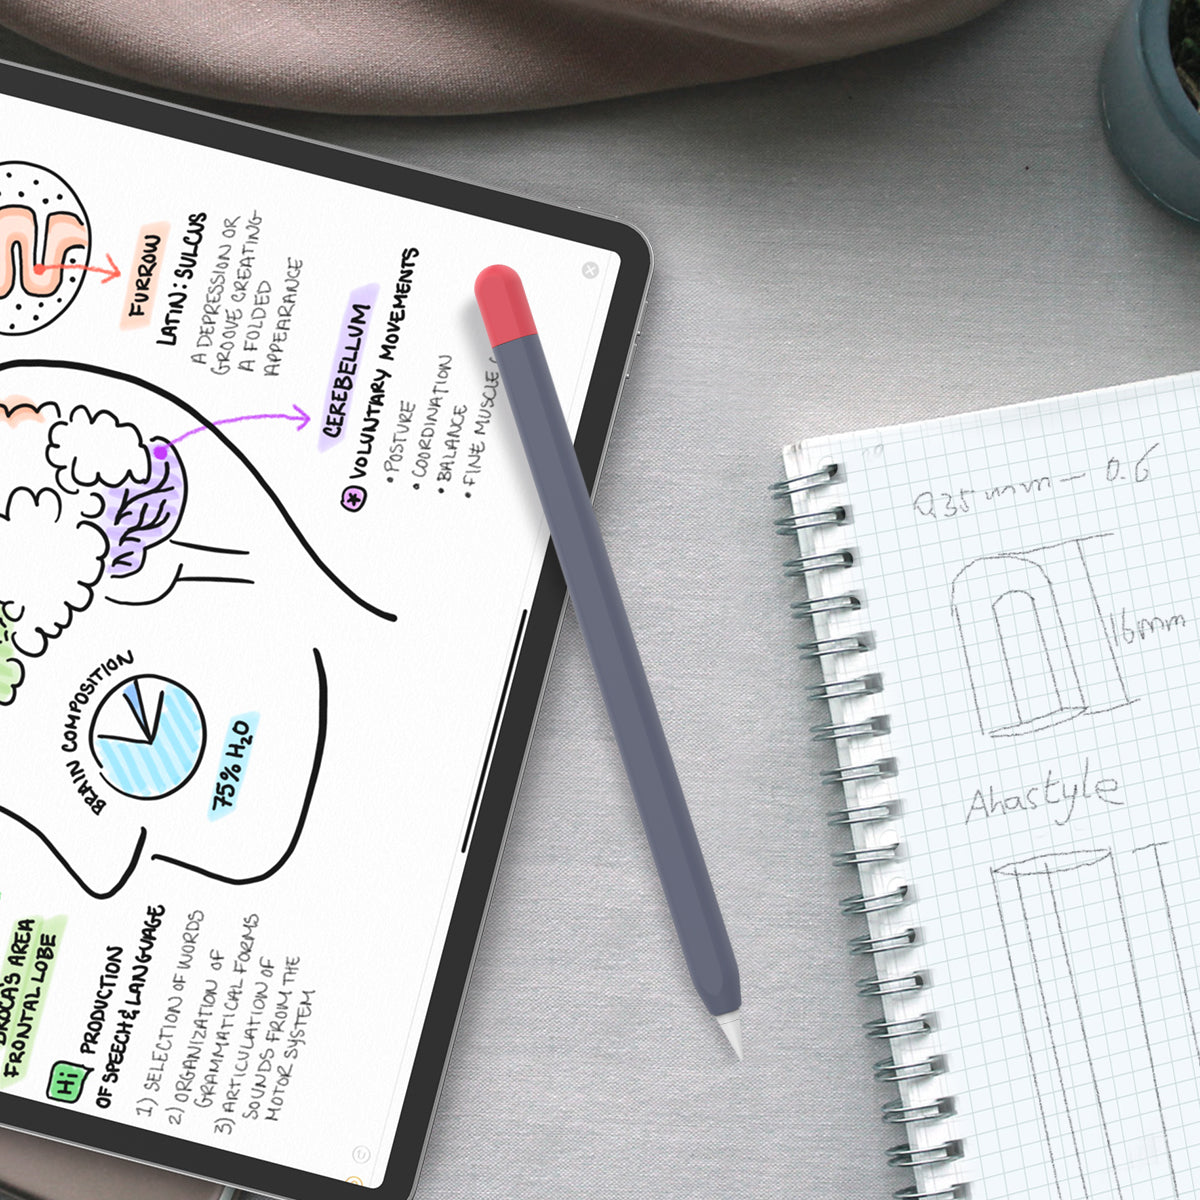 FURROW
LATIN: SULCUS
A DEPRESSION OR
GROOVE CREATING
A FOLDED
APPEARANCE
CEREBELLUM
* VOLUNTARY MOVEMENTS
• POSTURE
• COORDINATION
• BALANCE
• FINE MUSCLE
BRAIN COMPOSITION
75% H₂O
BROCA'S AREA
FRONTAL LOBE
Hi PRODUCTION
OF SPEECH & LANGUAGE
1) SELECTION OF WORDS
2) ORGANIZATION OF
GRAMMATICAL FORMS
3) ARTICULATION OF
SOUNDS FROM THE
MOTOR SYSTEM
0.35mm – 0.6
16mm
Ahastyle